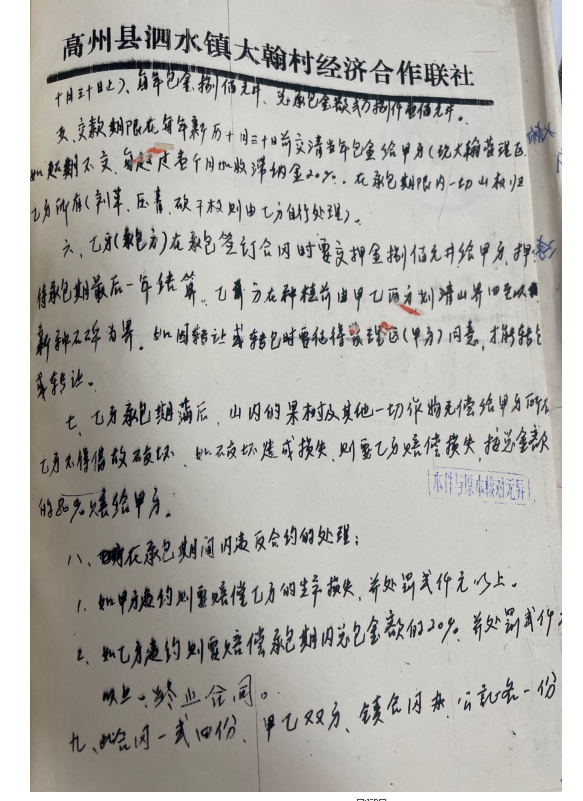 高州县泗水镇大翰村经济合作联社
十月三十日止）、每年包金捌佰元井、总承包金款式万捌仟
交款期限在每年新历十月三十日前交清当年包金给甲方（
如超期不交、每超过壹个月加收滞纳金20%。在承包期限内一切山权归
乙方所有（割草、压青、砍干枝则由乙方自行处理）。
六、乙方（承包方）在承包签订合同时要交押金捌佰元井给甲方、押
待承包期最后一年结算。乙方在种植前由甲乙两方划清山界四至以
新种石碎为界。如因转让或转包时要征得管理区（甲方）同意，才能转包
或转让。
七、乙方承包期满后、山内的果树及其他一切作物无偿给甲方所有
乙方不得借故破坏、如破坏造成损失、则要乙方赔偿损失，按总金额
本件与原本核对无异
的80%赔给甲方。
八、在承包期间内违反合约的处理：
1、如甲方违约则要赔偿乙方的生产损失、并处罚式仟元以上。
2、如乙方违约则要赔偿承包期内总包金额的20%、并处罚式仟
以上、终止合同。
九、此合同一式四份、甲乙双方、镇合同办、公证各一份